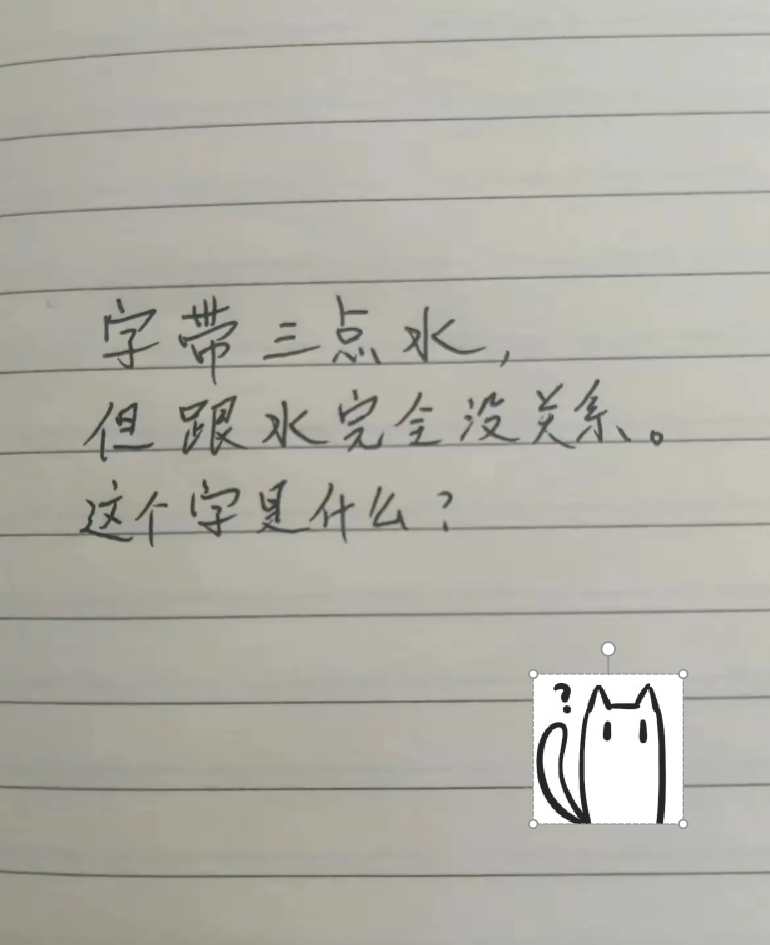 字带三点水，
但跟水完全没关系。
这个字是什么？
?